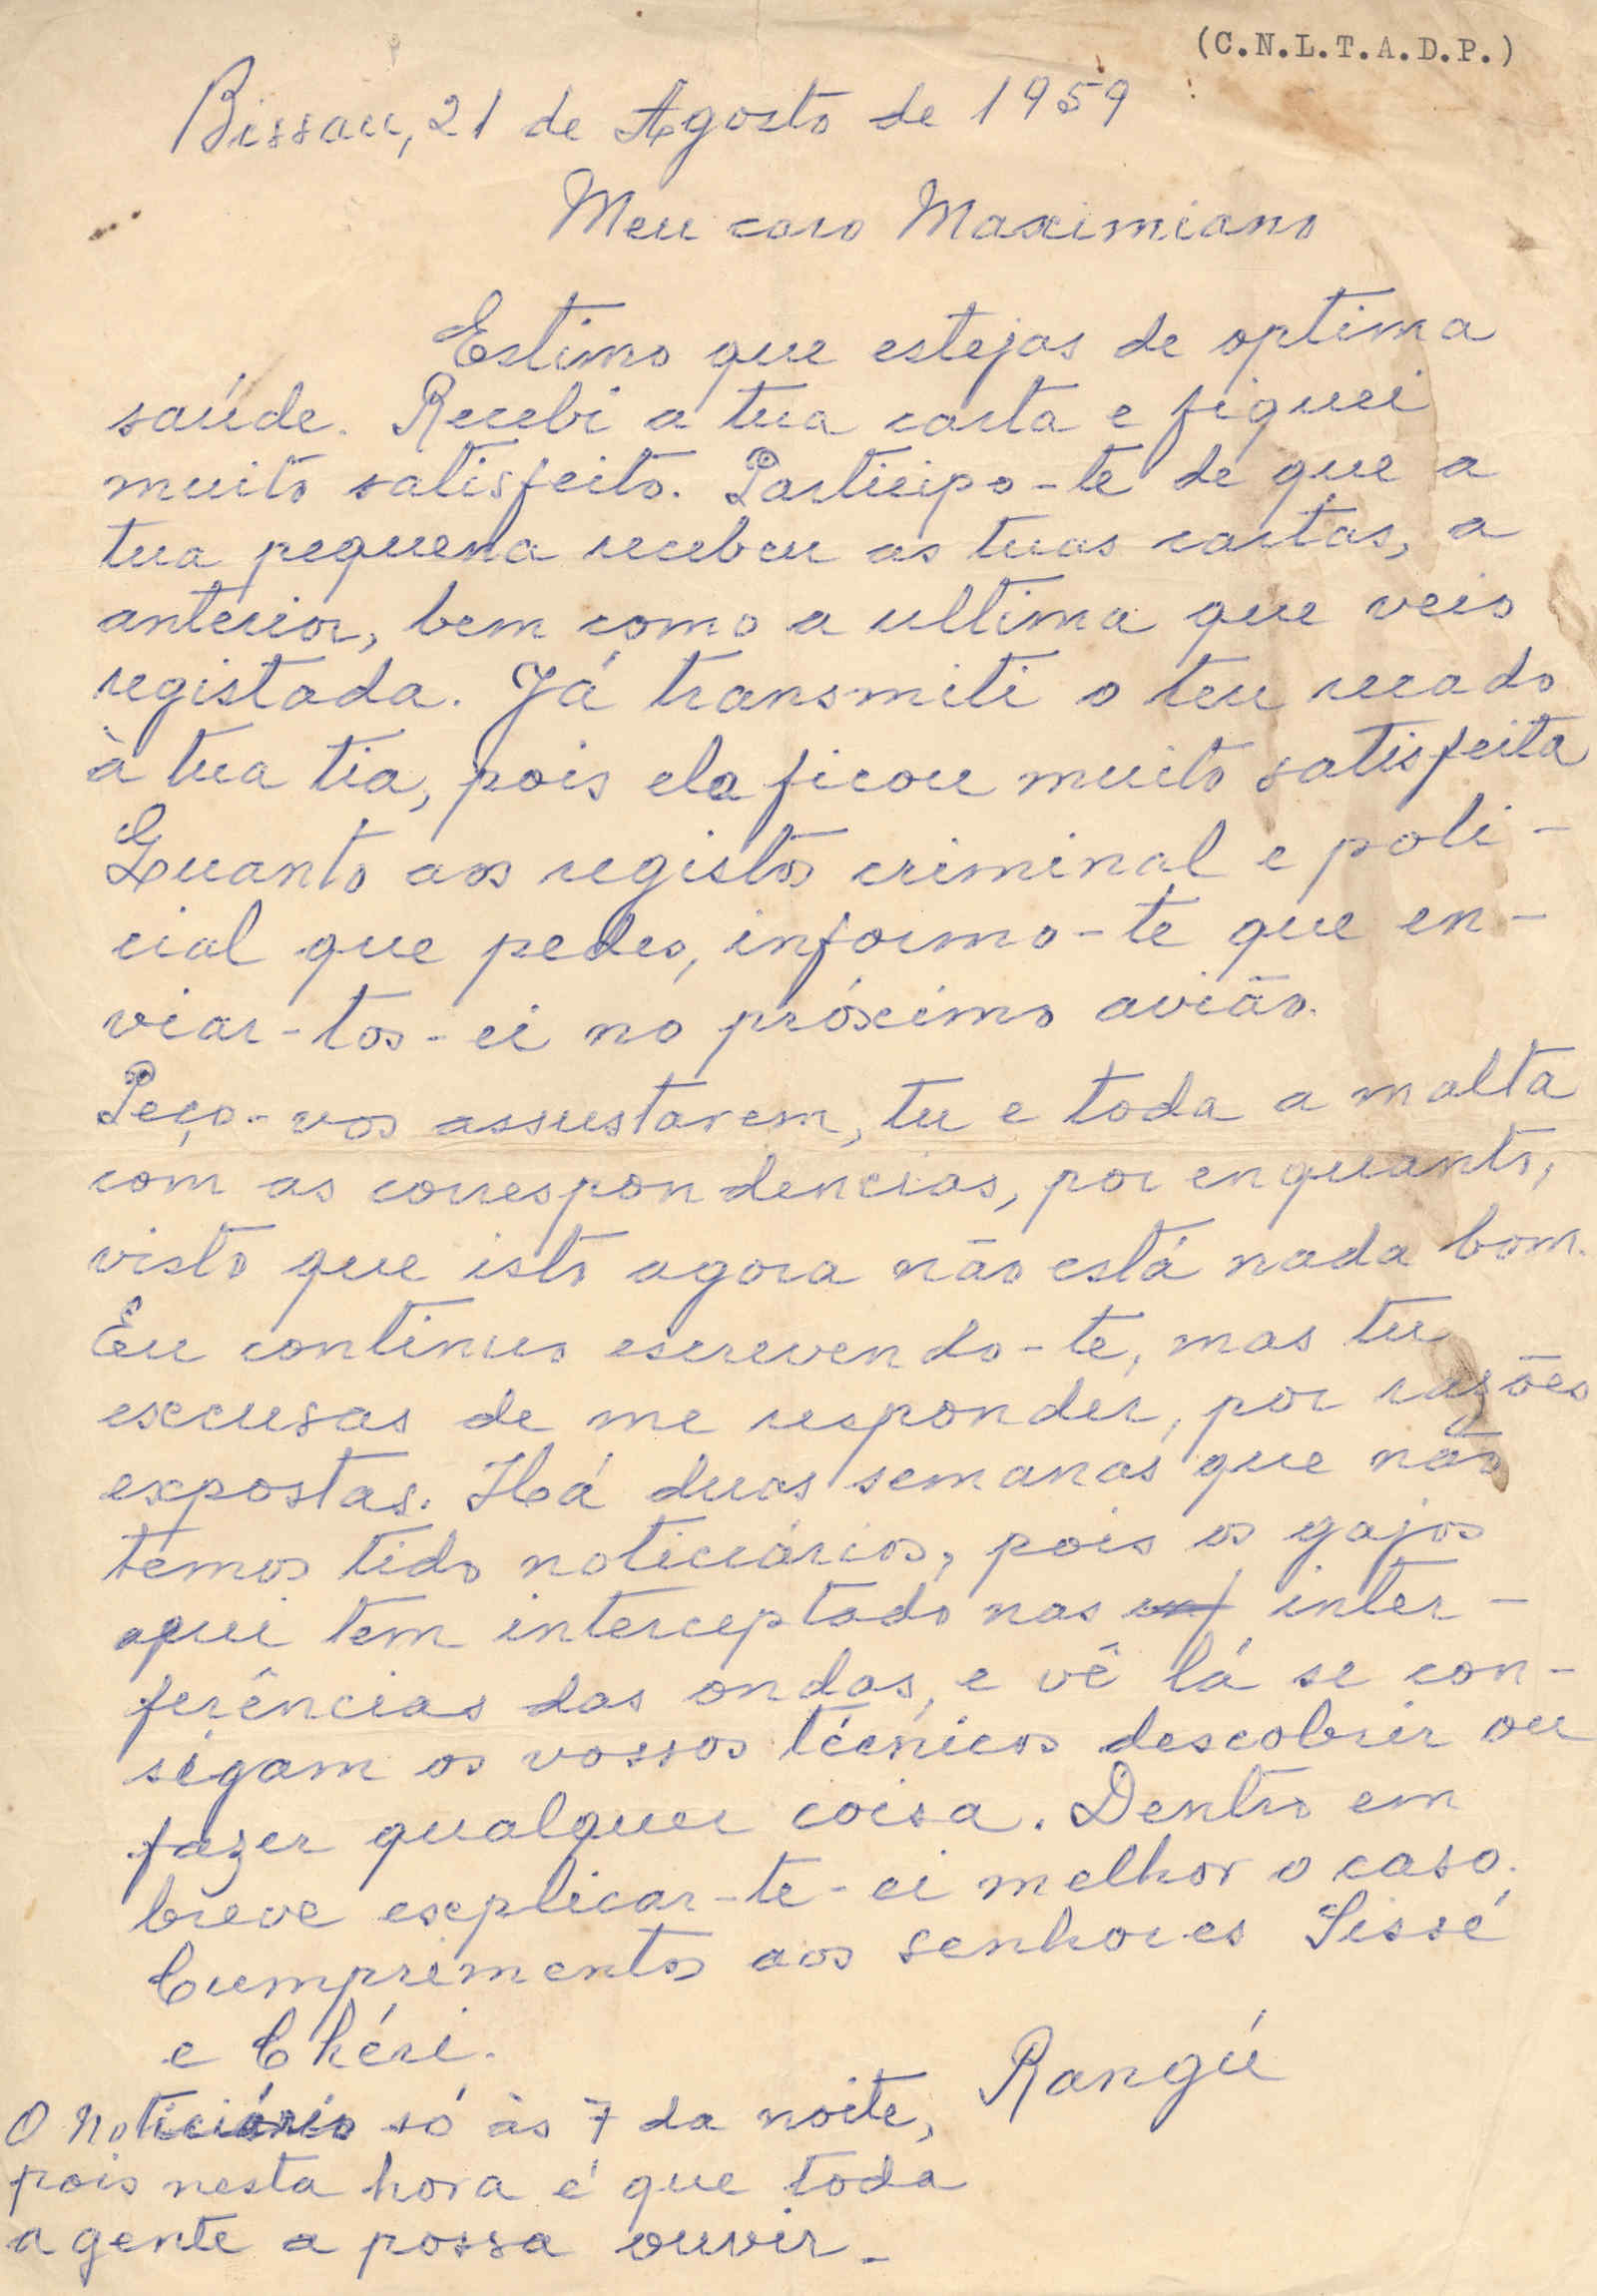 (C.N.L.T.A.D.P.)
Bissau, 21 de Agosto de 1959
Meu caro Maximiano
Estimo que estejas de optima
saúde. Recebi a tua carta e fiquei
muito satisfeito. Participo-te de que a
tua pequena recebeu as tuas cartas, a
anterior, bem como a ultima que veio
registada. Já transmiti o teu recado
à tua tia, pois ela ficou muito satisfeita
Quanto aos registos criminal e poli-
cial que pedes, informo-te que en-
viar-tos-ei no próximo avião.
Peço-vos assustarem, tu e toda a malta
com as correspondencias, por enquanto,
visto que isto agora não está nada bom.
Eu continuo escrevendo-te, mas tu
excusas de me responder, por razões
expostas. Há duas semanas que não
temos tido noticiários, pois os gajos
aqui tem interceptado nas inter-
ferências das ondas, e vê lá se con-
sigam os vossos técnicos descobrir ou
fazer qualquer coisa. Dentro em
breve explicar-te-ei melhor o caso.
Cumprimentos aos senhores Sissé
e Chéri.
Rangú
O Noticiário só às 7 da noite,
pois nesta hora é que toda
a gente a possa ouvir.